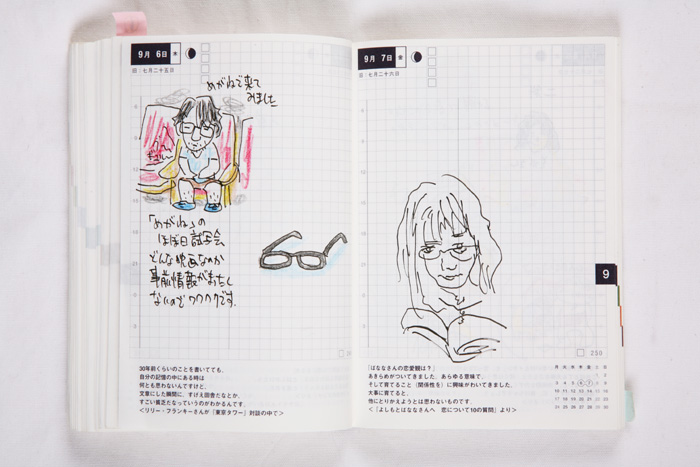 9月 6日 木
旧:七月二十五日
めがねで来て
みました
「めがね」の
ほぼ日試写会
どんな映画なのか
事前情報がまったく
ないのでワクワクです。
30年前くらいのことを書いてても、
自分の記憶の中にある時は
何とも思わないんですけど、
文章にした瞬間に、すげえ田舎だなとか、
すごい貧乏だなっていうのがわかるんです。
<リリー・フランキーさんが『東京タワー』対談の中で>
9月 7日 金
旧:七月二十六日
9
250
「ばななさんの恋愛観は?」
あきらめがついてきました。あらゆる意味で。
そして育てること(関係性を)に興味がわいてきました。
大事に育てると、
他にとりかえようとは思わないものです。
<「よしもとばななさんへ 恋について10の質問」より>
月 火 水 木 金 土 日
1 2
3 4 5 6 7 8 9
10 11 12 13 14 15 16
17 18 19 20 21 22 23
24 25 26 27 28 29 30